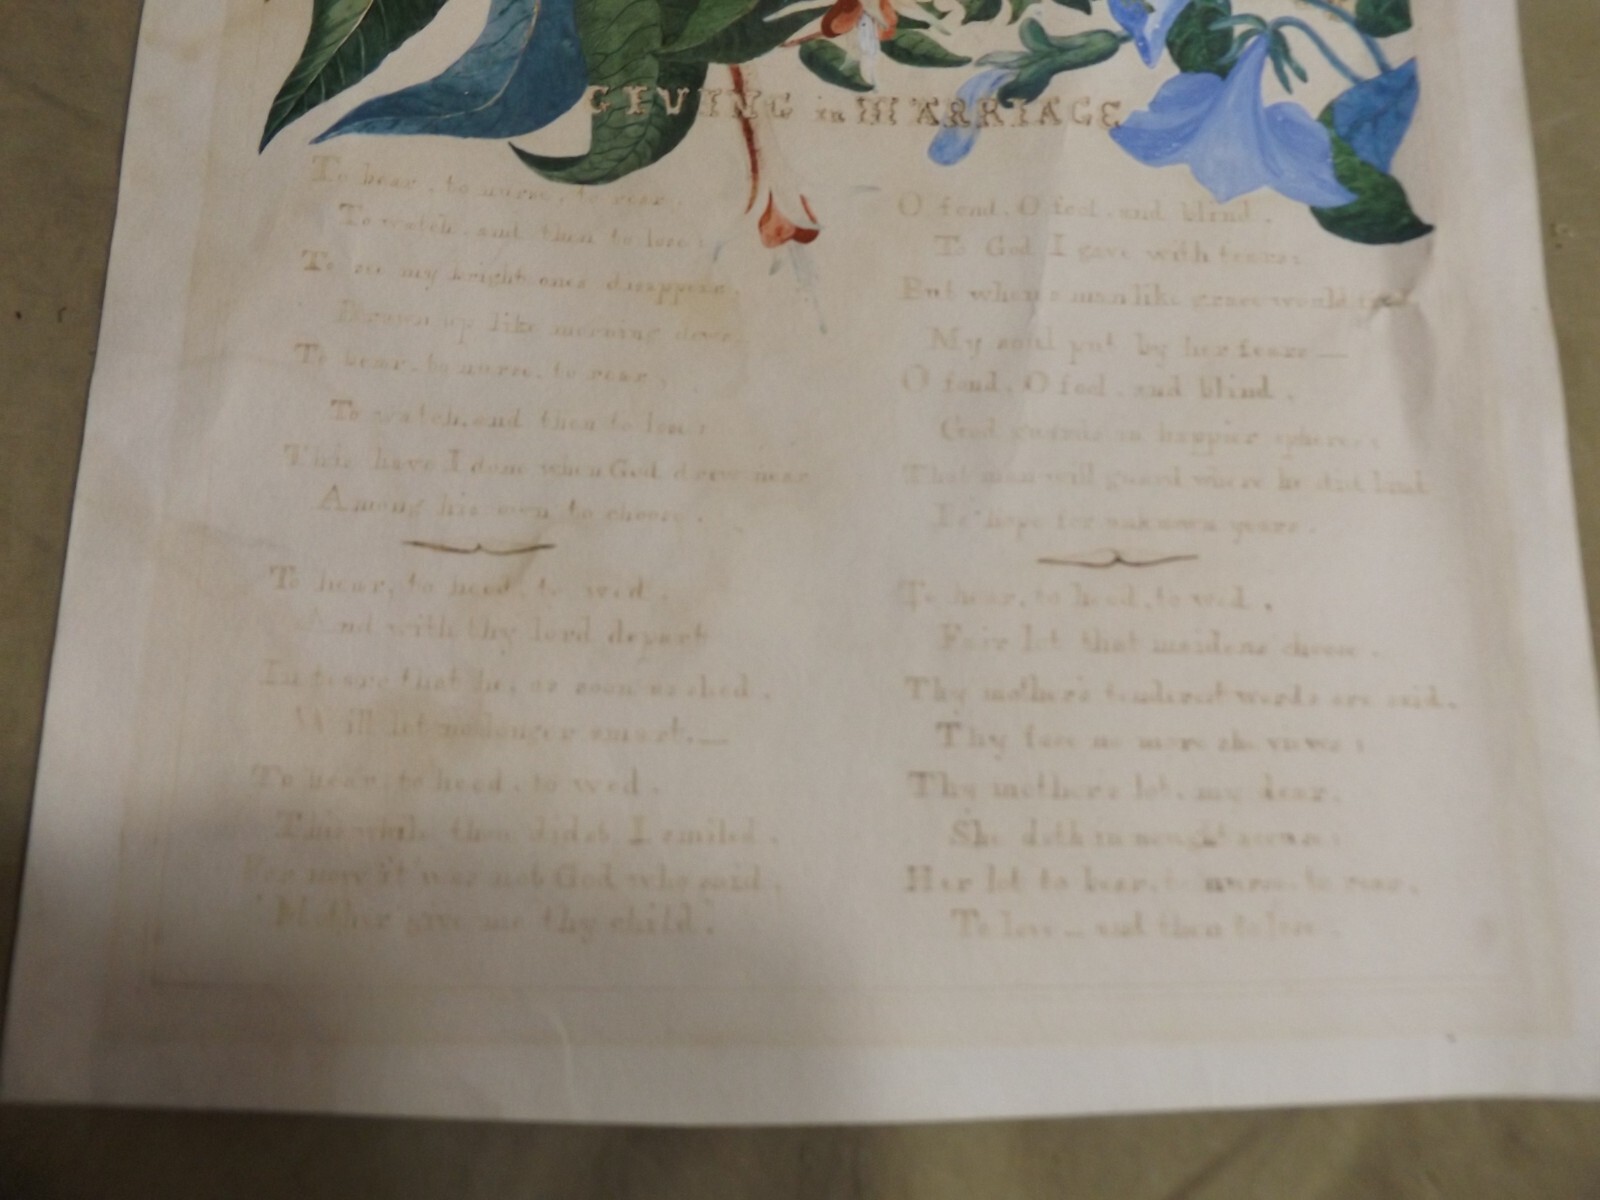 GIVING in MARRIAGE
To bear, to nurse, to rear,
To watch, and then to lose:
To see my bright ones disappear,
Drawn up like morning dews.—
To bear, to nurse, to rear,
To watch, and then to lose:
This have I done when God drew near
Among his own to choose.
To hear, to heed, to wed,
And with thy lord depart
In tears that he, as soon as shed,
Will let no longer smart.—
To hear, to heed, to wed,
This while thou didst I smiled,
For now it was not God who said,
"Mother give me thy child".
O fond, O fool, and blind,
To God I gave with tears;
But when a man like grace would find
My soul put by her fears—
O fond, O fool, and blind,
God guards in happier spheres;
That man will guard where he did bind
Is hope for unknown years.
To hear, to heed, to wed,
Fair lot that maidens choose,
Thy mother's tenderest words are said,
Thy face no more she views;
Thy mother's lot, my dear,
She doth in nought accuse;
Her lot to bear, to nurse, to rear,
To love—and then to lose.